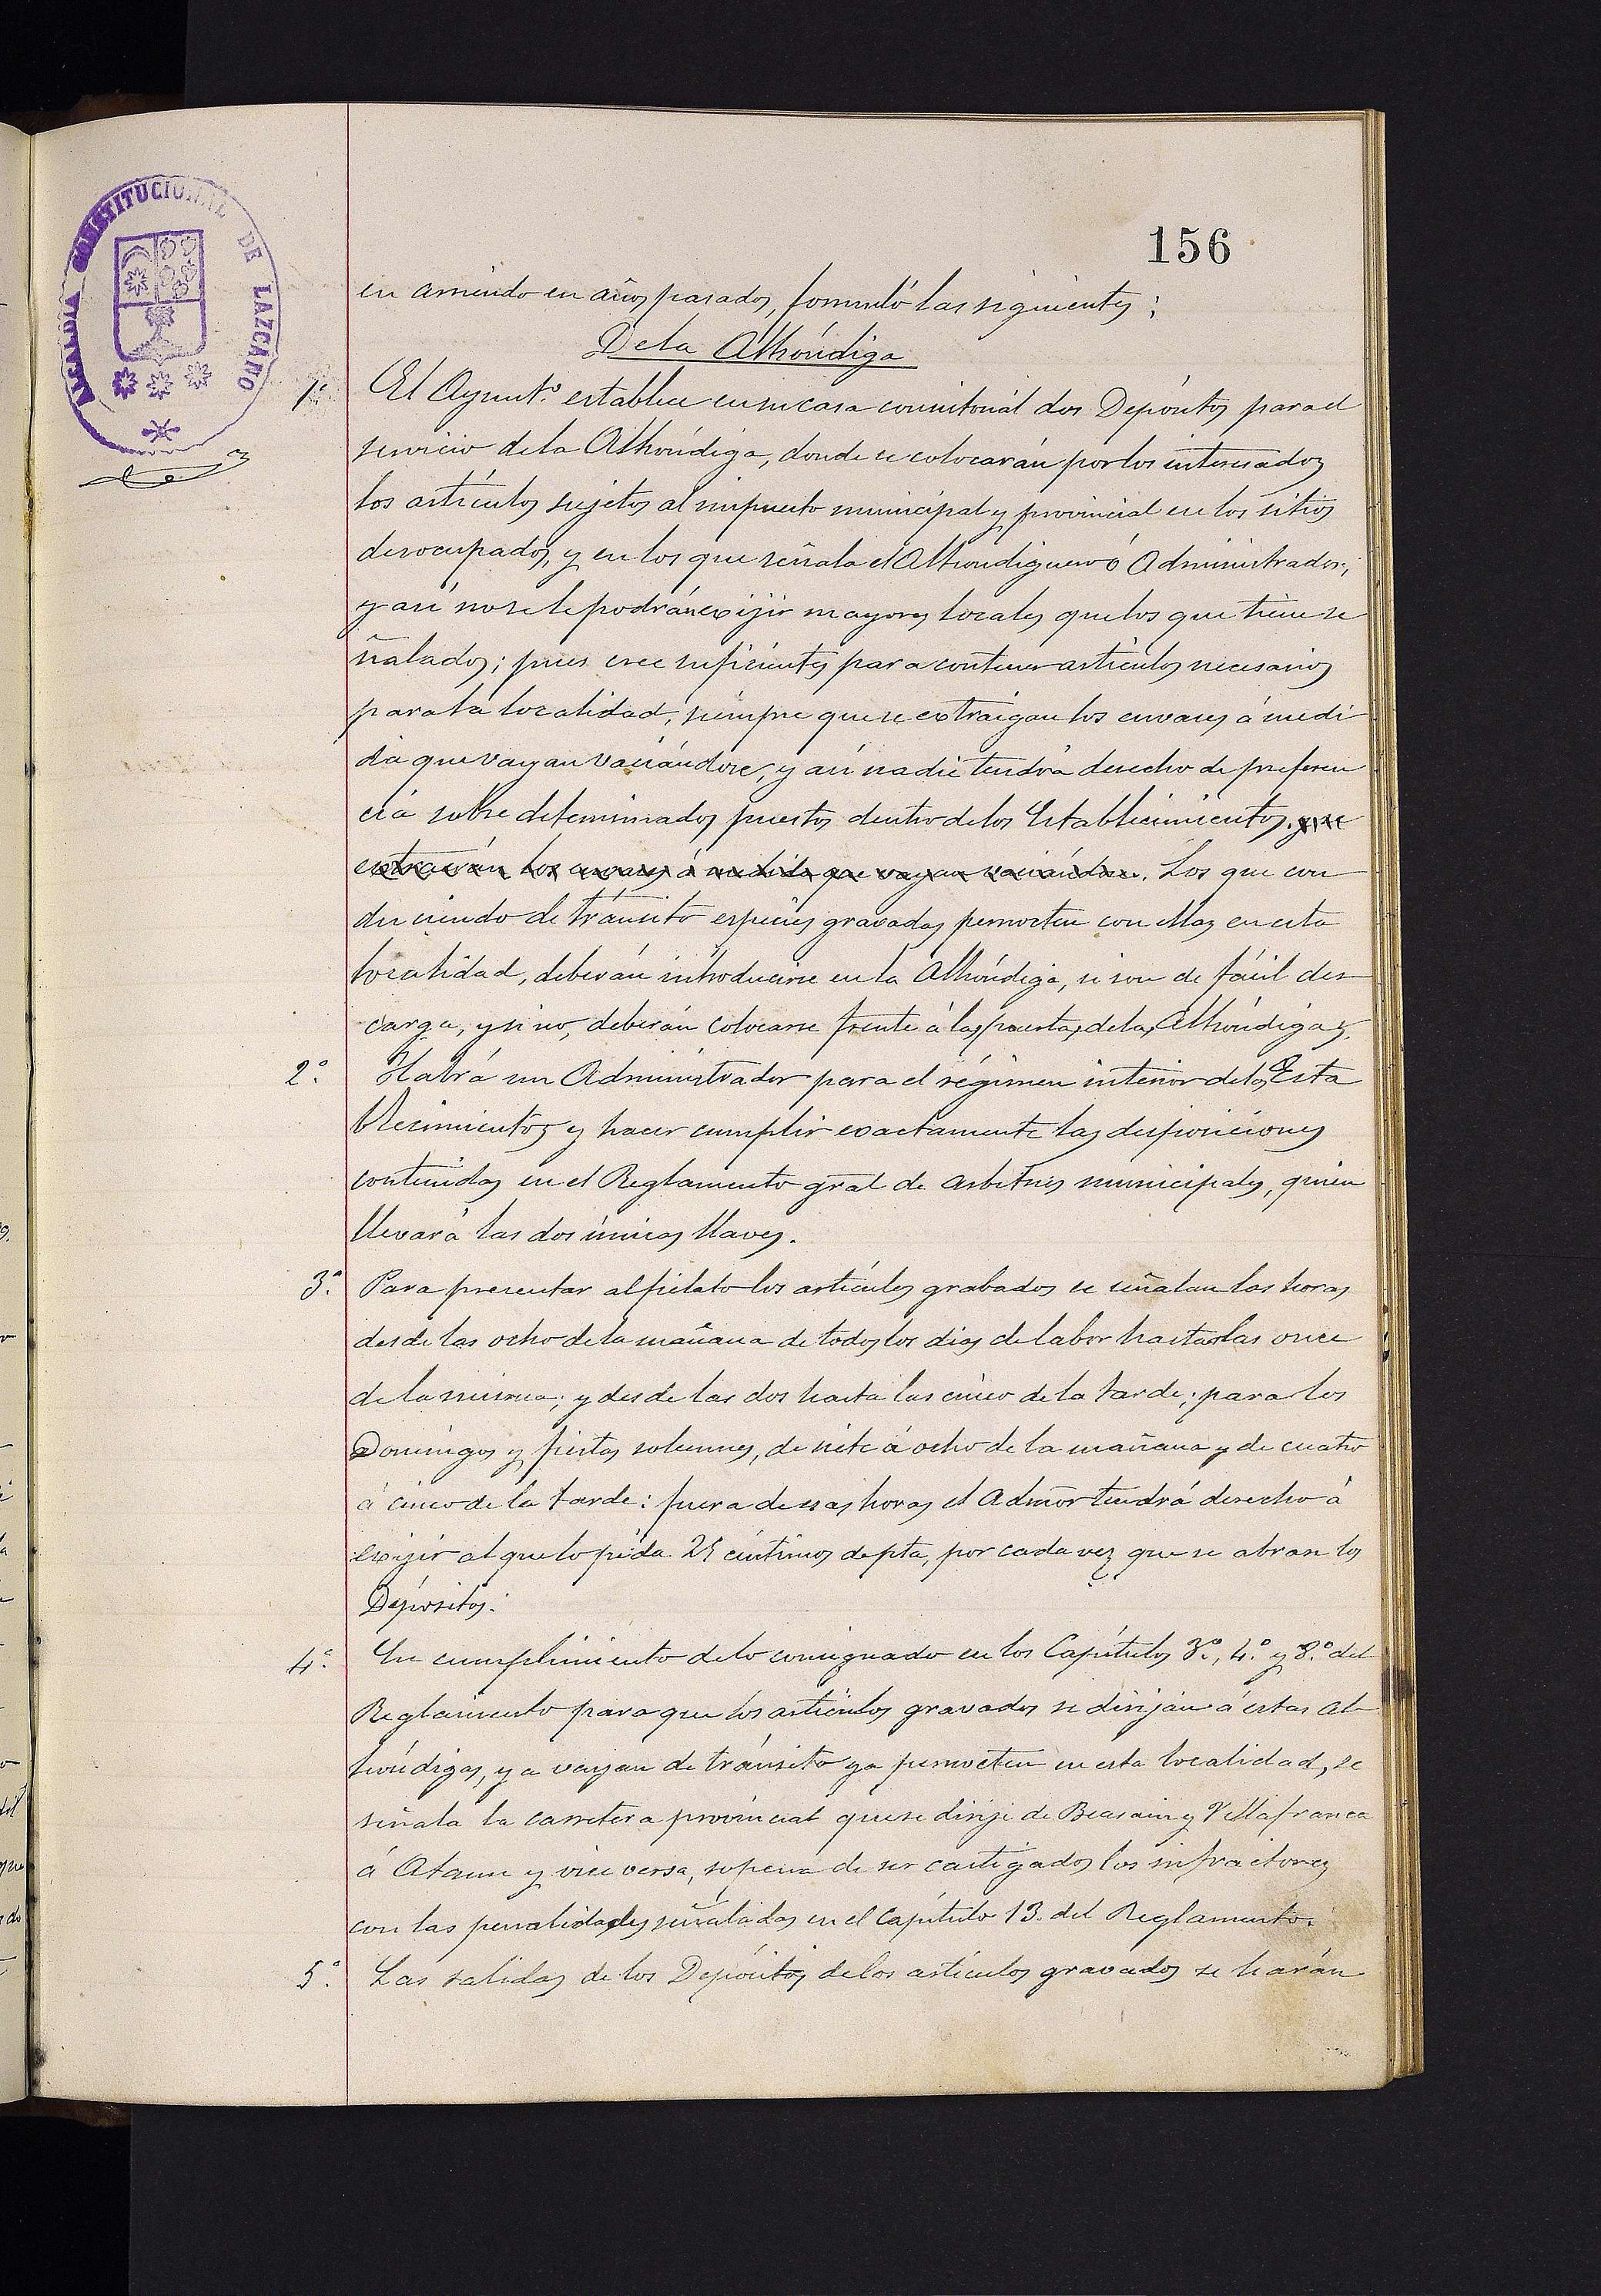 156
ALCALDIA CONSTITUCIONAL DE LAZCANO
en arriendo en años pasados, formuló las siguientes:
De la Alhóndiga
1º El Ayuntº establece en su casa consistorial dos Depósitos para el
servicio de la Alhóndiga, donde se colocarán por los interesados
los artículos sujetos al impuesto municipal y provincial en los sitios
desocupados, y en los que señala el Alhondiguero ó Administrador;
y así no se le podrán exijir mayores locales que los que tiene se
ñalados; pues cree suficientes para contener artículos necesarios
para la localidad, siempre que se extraigan los envases á medi
da que vayan vaciándose, y así nadie tendrá derecho de preferen
cia sobre determinados puestos dentro de los Establecimientos. y se
extraerán los envases á medida que vayan vaciándose. Los que con
duciendo de tránsito especies gravadas pernocten con ellas en esta
localidad, deberán introducirse en la Alhóndiga, si son de fácil des
carga, y si no, deberán colocarse frente á las puertas de las Alhóndigas.
2º Habrá un Administrador para el régimen interior de los Esta
blecimientos y hacer cumplir exactamente las disposiciones
contenidas en el Reglamento gral de arbitrios municipales, quien
llevará las dos únicas llaves.
3º Para presentar al fielato los artículos grabados se señalan las horas
desde las ocho de la mañana de todos los dias de labor hasta las once
de la misma; y desde las dos hasta las cinco de la tarde; para los
Domingos y fiestas solemnes, de siete á ocho de la mañana y de cuatro
á cinco de la tarde: fuera de esas horas el Admor tendrá derecho á
exijir al que lo pida 25 céntimos de pta, por cada vez que se abran los
Depósitos.
4º En cumplimiento de lo consignado en los Capítulos 3º, 4º y 8º del
Reglamento para que los artículos gravados se dirijan á estas Al
hóndigas, ya vayan de tránsito ya pernocten en esta localidad, se
señala la carretera provincial que se dirije de Beasain y Villafranca
á Ataun y vice versa, so pena de ser castigados los infractores
con las penalidades señaladas en el Capítulo 13. del Reglamento.
5º Las salidas de los Depósitos de los artículos gravados se harán